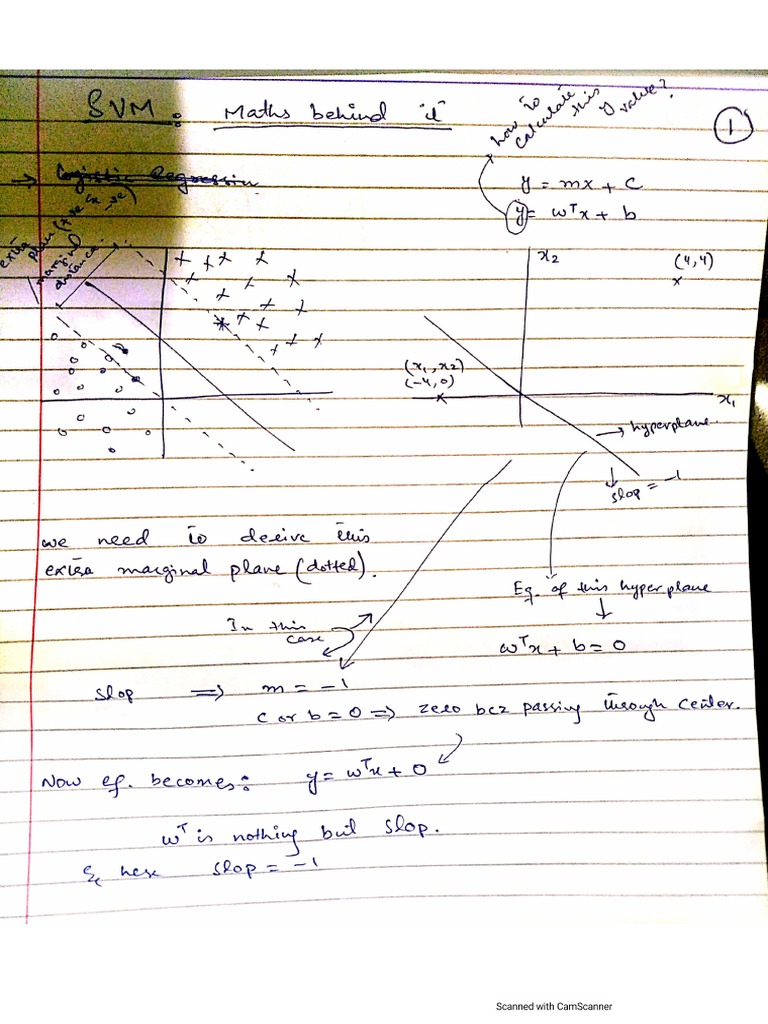 SVM : Maths behind "it"
how to calculate this y value?
1
⇒ Logistic Regression
y = mx + c
y = wᵀx + b
extra plain (+ve & -ve)
marginal distance
x2
(4,4)
(x1, x2)
(-4,0)
x1
→ hyperplane.
slop = -1
we need to derive this
extra marginal plane (dotted).
Eq. of this hyperplane
↓
wᵀx + b = 0
In this case
slop ⇒ m = -1
c or b = 0 ⇒ zero bcz passing through center.
Now eq. becomes: y = wᵀx + 0
wᵀ is nothing but slop.
& here slop = -1
Scanned with CamScanner